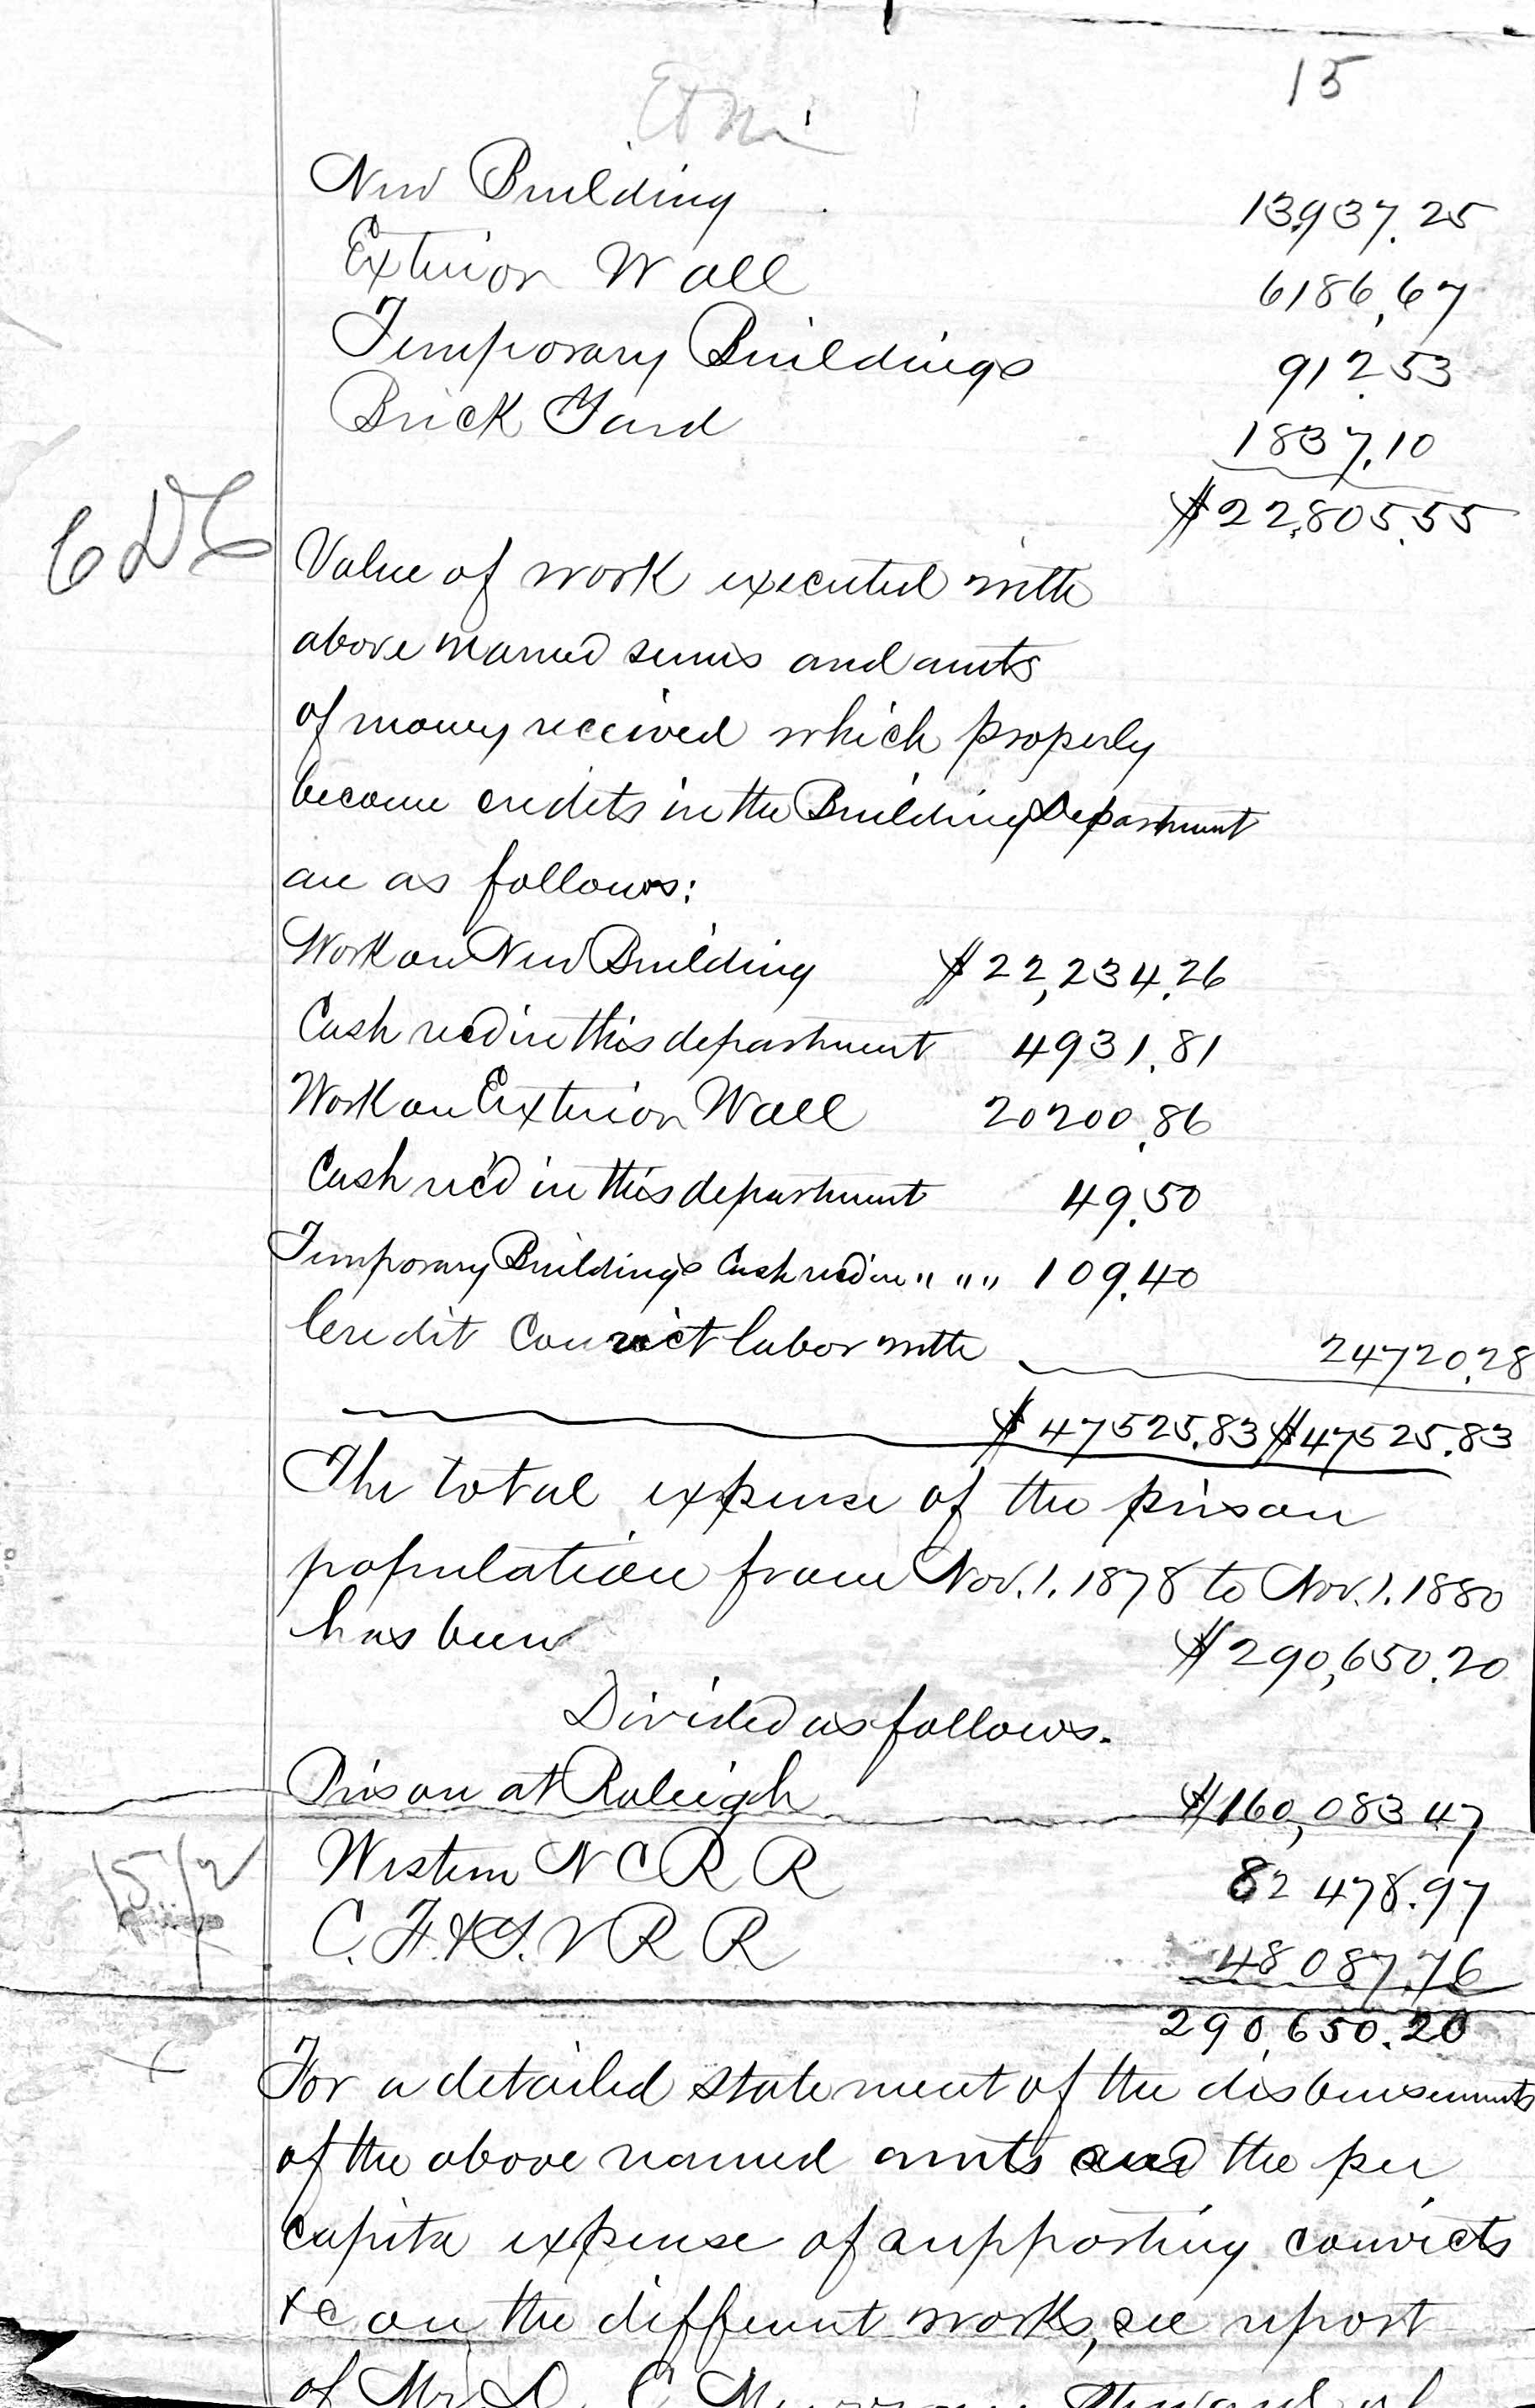 15
New Building 13,937.25
Exterior Wall 6186.67
Temporary Buildings 912.53
Brick Yard 1837.10
$22,805.55
Value of work executed with
above named sums and amts
of money received which properly
become credits in the Building Department
are as follows:
Work on New Building $22,234.26
Cash recd in this department 4931.81
Work on Exterior Wall 20200.86
Cash rec'd in this department 49.50
Temporary Buildings Cash recd in " " " 109.40
Credit Convict labor with 24720.28
$47525.83 $47525.83
The total expense of the prison
population from Nov. 1. 1878 to Nov. 1. 1880
has been $290,650.20
Divided as follows.
Prison at Raleigh $160,083 47
Western N C R R 82 478.97
C. F. & Y. V R R 48 087.76
290,650.20
For a detailed statement of the disbursements
of the above named amts and the per
capita expense of supporting convicts
&c on the different works, see report
of Mr